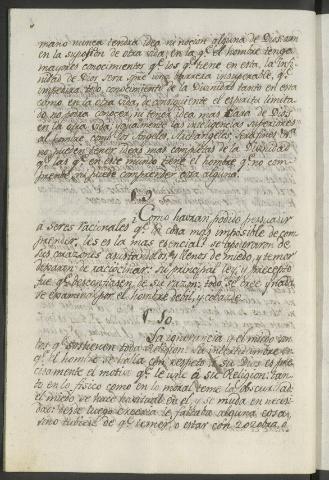 mano nunca tendra idea ni nocion alguna de Dios: aun
en la suposicion de otra vida, en la q.e el hombre tenga
mayores conocimientos q.e los q.e tiene en esta, la infi
nidad de Dios será siempre una barrera insuperable, q.e
impedirá todo conocimiento de la Divinidad tanto en esta
como en la otra vida, de consiguiente el espiritu limita
do no podrá conocer, ni tener idea mas clara de Dios
en la otra vida, igualmente las inteligencias superiores
al hombre, como los Angeles, Archangeles Serafines &.a
no pueden tener ideas mas completas de la Divinidad
q.e las q.e en este mundo tiene el hombre q.e no com-
prende ni puede comprender cosa alguna.
¿Como havran podido persuadir
á seres racionales q.e la cosa mas imposible de com-
prender, les es la mas esencial? se apoderaron de
sus corazones agitandolos, y llenos de miedo, y temor
dejaron de raciocinar: su principal ley, y precepto
fue q.e desconfiasen de su razon; todo se cree, y nada
se examina por el hombre debil, y cobarde.
§. 10.
La ignorancia y el miedo son
los q.e sostienen toda Religion. La incertidumbre en
q.e el hombre se halla con respeto á su Dios es pre-
cisamente el motivo q.e le une á su Religion: tan-
to en lo fisico como en lo moral teme la obscuridad
el miedo se hace habitual en el, y se muda en necesi-
dad: desde luego creeria le faltaba alguna cosa,
sino tubiese de q.e temer, o estar con zozobra.